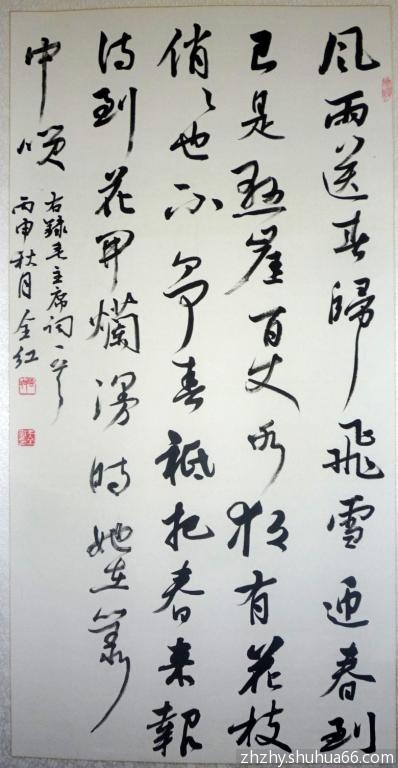 風雨送春歸飛雪迎春到
已是懸崖百丈冰猶有花枝
俏俏也不爭春祗把春来報
待到花開爛漫時她在叢
中笑
右錄毛主席詞一首
丙申秋月金紅
zhzhy.shuhua66.com